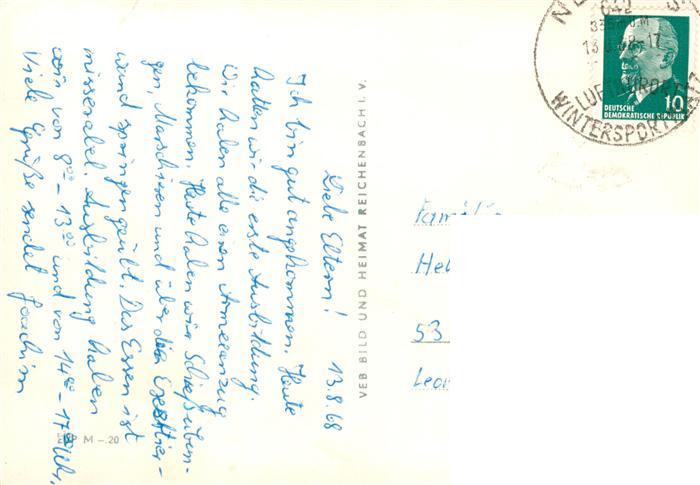 Liebe Eltern! 13.8.68
Ich bin gut angekommen. Heute
hatten wir die erste Ausbildung.
Wir haben alle einen Armeeanzug
bekommen. Heute haben wir Schießübun-
gen, Maschieren und über die Exerzier-
wand springen geübt. Das Essen ist
misserabel. Ausbildung haben
wir von 8⁰⁰ - 13⁰⁰ und von 14⁰⁰ - 17⁰⁰ Uhr.
Viele Grüße sendet Joachim
VEB BILD UND HEIMAT REICHENBACH I. V.
M -.20
642
LUFTKURORT
WINTERSPORTPLATZ
10
DEUTSCHE
DEMOKRATISCHE REPUBLIK
Familie
Hel
53
Leon